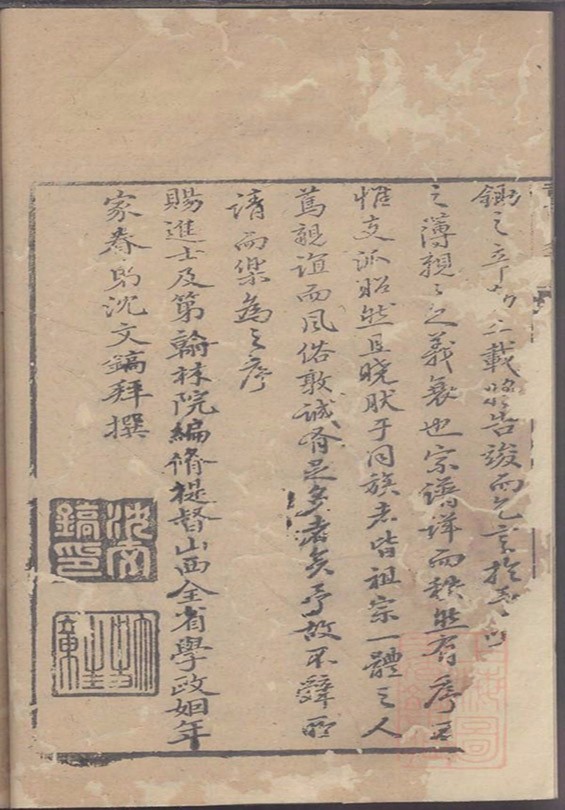 鋤之辛勤三載將告竣而乞言於
之薄親之義衰也宗譜詳而秩然有序不
惟支派昭然且曉肰于同族者皆祖宗一體之人
篤親誼而風俗敦誠有足多者矣予故不辭所
請而樂為之序
賜進士及第翰林院編脩提督山西全省學政姻年
家眷弟沈文鎬拜撰
沈文
鎬印